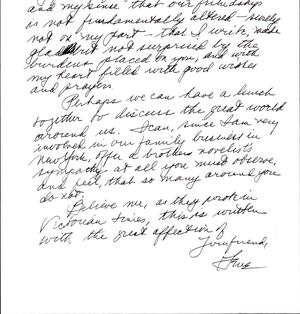 and my sense that our friendship
is not fundamentally altered - surely
not on my part - that I write, made
glad but not surprised by the
burdens placed on you, and with
my heart filled with good wishes
and prayers.
Perhaps we can have a lunch
together to discuss the great world
around us. I can, since I am very
involved in our family business in
New York, offer a brother novelist's
sympathy at all you must observe,
and feel, that so many around you
do not.
Believe me, as they wrote in
Victorian times, this is written
with the great affection of
Your friend,